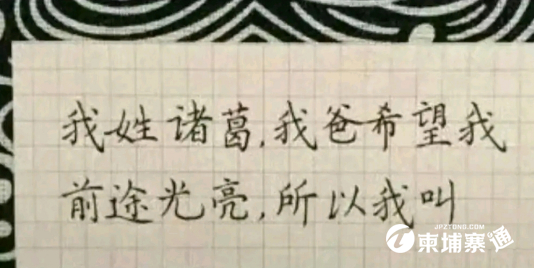 我姓诸葛,我爸希望我
前途光亮,所以我叫
JPZTONG.COM
柬埔寨通